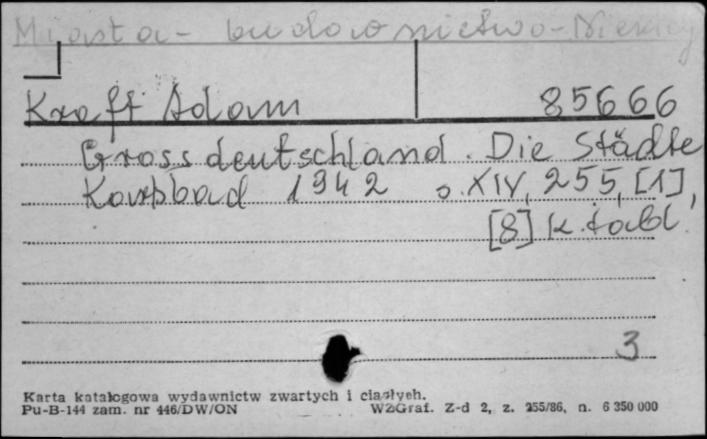 Miasta - budownictwo - Niemcy
Kraft Adam 85666
Grossdeutschland. Die Städte
Karlsbad 1942 s. XIV, 255, [1],
[8] k. tabl.
3
Karta katalogowa wydawnictw zwartych i ciągłych.
Pu-B-144 zam. nr 446/DW/ON WZGraf. Z-d 2, z. 255/86, n. 6 350 000